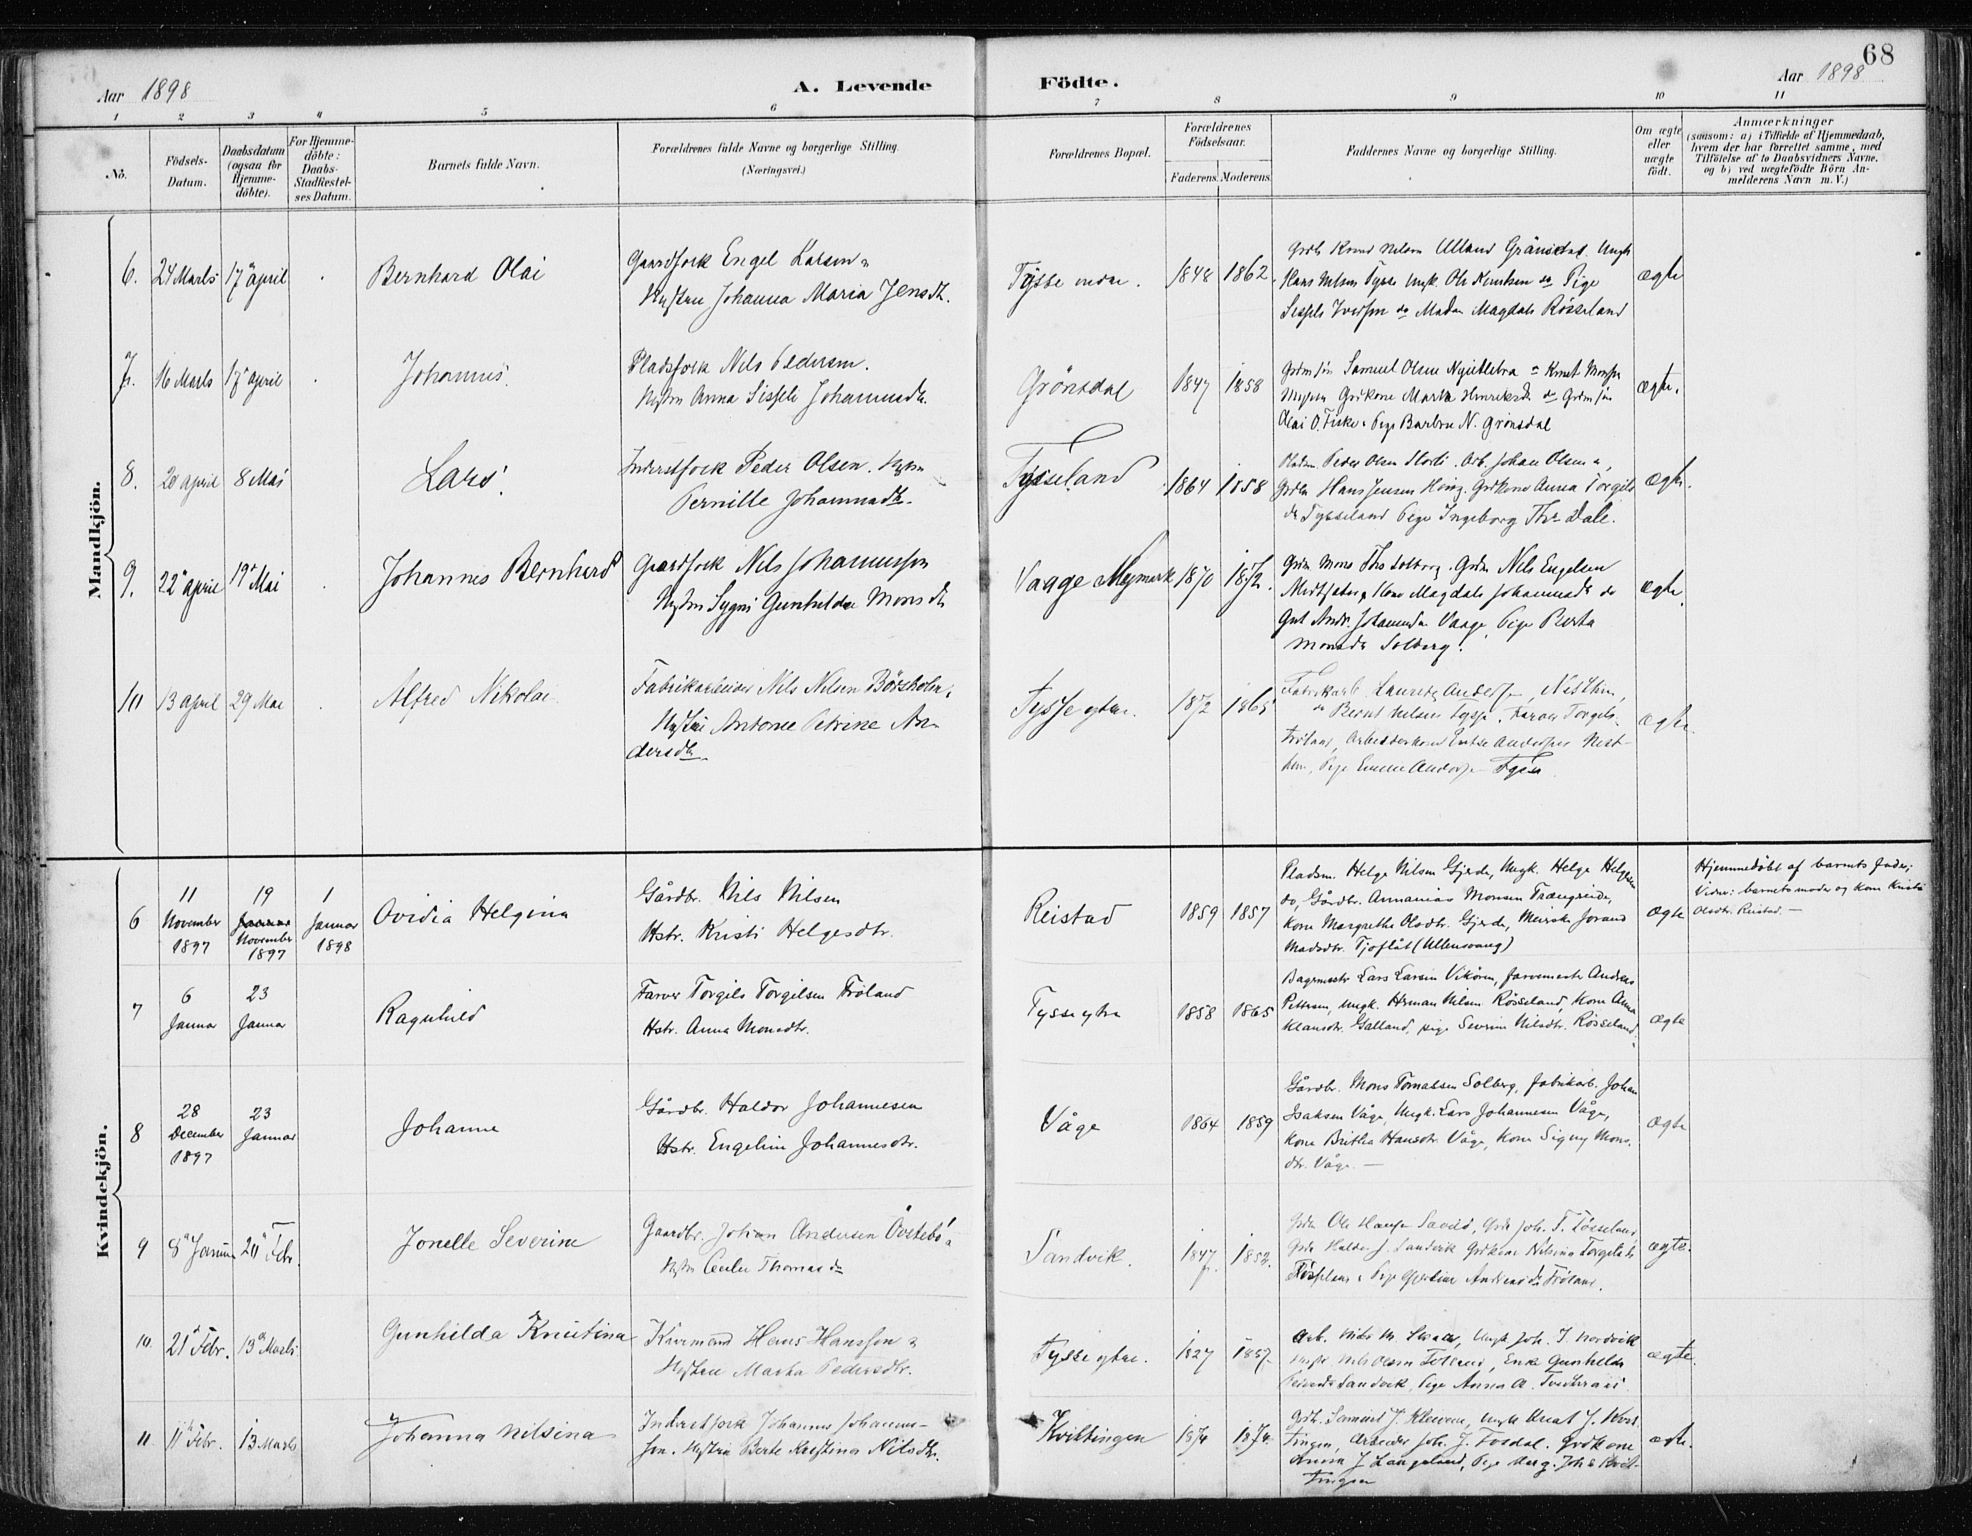 68
Aar 1898
A. Levende
Födte.
Aar 1898
1 2 3 4 5 6 7 8 9 10 11
No.
Födsels-Datum.
Daabsdatum (ogsaa for Hjemme-döbte).
For Hjemme-döbte: Daabs-Stadfæstel-ses Datum.
Barnets fulde Navn.
Forældrenes fulde Navne og borgerlige Stilling.
(Næringsvei.)
Forældrenes Bopæl.
Forældrenes Födselsaar.
Faderens. Moderens.
Faddernes Navne og borgerlige Stilling.
Om ægte eller uægte födt.
Anmærkninger
(saasom: a) i Tilfælde af Hjemmedaab, hvem der har forrettet samme, med Tilföielse af to Daabsvidners Navne, og b) ved uægtefödte Börn An-melderens Navn m. V.)
Mandkjön.
6. 24 Marts 17 april Bernhard Olai
Gaardfolk Engel Larsen
Hustru Johanna Maria Jensdtr.
Tysse indre. 1848 1862
Hans Nilsen Tysse Ungk. do Pige
do Magdale Rösseland
ægte
7. 16 Marts 17 april Johannes.
Pladsfolk Nils Pedersen.
Hustru Anna Sissele Johannesdtr.
Grönsdal 1847 1858
Samuel Olsen
Gdkone Marta Henriksd.
Pige Barbra N. Grönsdal
ægte.
8. 20 april 8 Mai Lars.
Inderstfolk Peder Olsen. Hustru
Pernille Johannesdtr.
Tysseland 1864 1858
Peder Olsen Arb. Johan Olsen
Hans Jensen Gdkone Anna Torgils
dtr Tysseland Pige Ingeborg Dale.
ægte.
9. 22 april 19 Mai Johannes Bernhard
Gaardfolk Nils Johannesson
Hustru Sygni Gunhilda Monsdtr
Vaage 1870 1872.
Mons Solberg. Nils Engelsen
Kone Magdale Johannesdtr do
Gut Andr. Vaage, Pige Berta
Monsdtr Solberg.
ægte.
10 13 april 29 Mai Alfred Nikolai
Fabrikarbeider Nils Nilsen Börsholm
Hustru Antonie Petrine An-
dersdtr.
Tysse ytre. 1872 1865
Fabrikarb.
Bernt Nilsen Tysse, Farver Torgils
Tröland,
Pige Emma Tysse
ægte.
Kvindekjön.
6 11 November 1897 19 Januar November 1897 1 Januar 1898 Ovidia Helgina
Gårdbr. Nils Nilsen
Hstr. Kristi Helgesdtr.
Reistad 1859 1857
Pladsm. Helge Nilsen Gjerde, Ungk. Helge Helgesen
do, Gårdbr. Annanias Monsen Trængereide,
Kone Margrethe Olsdtr. Gjerde, Meierske Jorand
Madsdtr. Tjoflåt (Ullensvang)
ægte
Hjemmedöbt af barnets fader;
Vidner: barnets moder og kone Kristi
Olsdtr. Reistad. —
7 6 Januar 23 Januar Ragnhild
Farver Torgils Torgilsen Tröland
Hstr. Anna Monsdtr.
Tysse ytre 1858 1865
Bagermestr Lars Larsen Vikören, farvemestr Andreas
Pettersen, ungk. Herman Nilsen Rösseland, Kone Anna
Klausdtr. Galland, pige Severine Nilsdtr. Rösseland.
ægte
8 28 December 1897 23 Januar Johanne
Gårdbr. Haldor Johannesen
Hstr. Engeline Johannesdtr.
Våge 1864 1859
Gårdbr. Mons Tomassen Solberg, fabrikarb. Johan
Isaksen Våge, Ungk. Lars Johannesen Våge,
Kone Britha Hansdtr. Våge, Kone Signy Mons-
dtr. Våge. —
ægte
9 8 Januar 20 Febr. Jonette Severine
Gaardbr. Johan Andersen Övrebö
Hustru Thomasdtr
Sandvik. 1847 1852.
Ole
Haldor J. Sandvik Gdkone Nilsina Torgilsdtr
ægte.
10. 21 Febr. 13 Marts Gunhilda Knutina
Hans Hansson
Hustru Martha Pedersdtr.
Tysse ytre. 1827 1857.
Arb. Nils M. Ungk Joh. J. Nordvik
Enke Gunhilda
Sandvik, Pige Anna A.
ægte.
11 11 Febr. 13 Marts Johanna Nilsina
Inderstfolk Johannes Johannes-
sen. Hustru Berte Kristina Nilsdtr.
Kvittingen 1874 1874
Samuel J. Ungk Knut J. Kvit
tingen, Arbeider Joh. J. Fosdal. Gdkone
Anna J Langeland, Pige Kvit-
tingen
ægte.